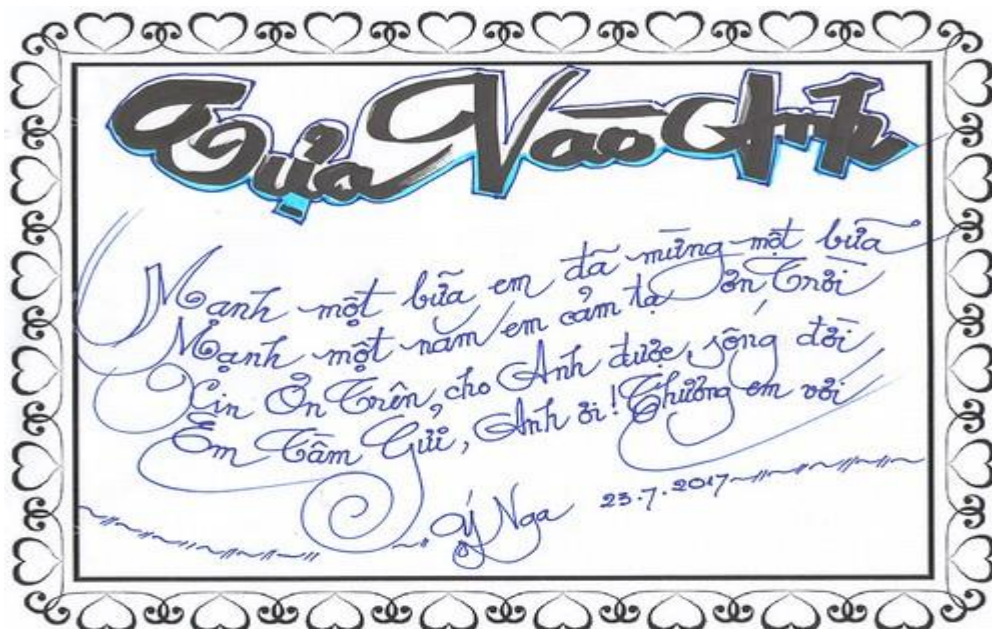 Tựa Vào Anh
Mạnh một bữa em đã mừng một bữa
Mạnh một năm em cảm tạ Ơn Trời
Xin Ơn Trên, cho Anh được sống đời
Em Tầm Gửi, Anh ơi! Thương em với
Ý Nga 23.7.2017